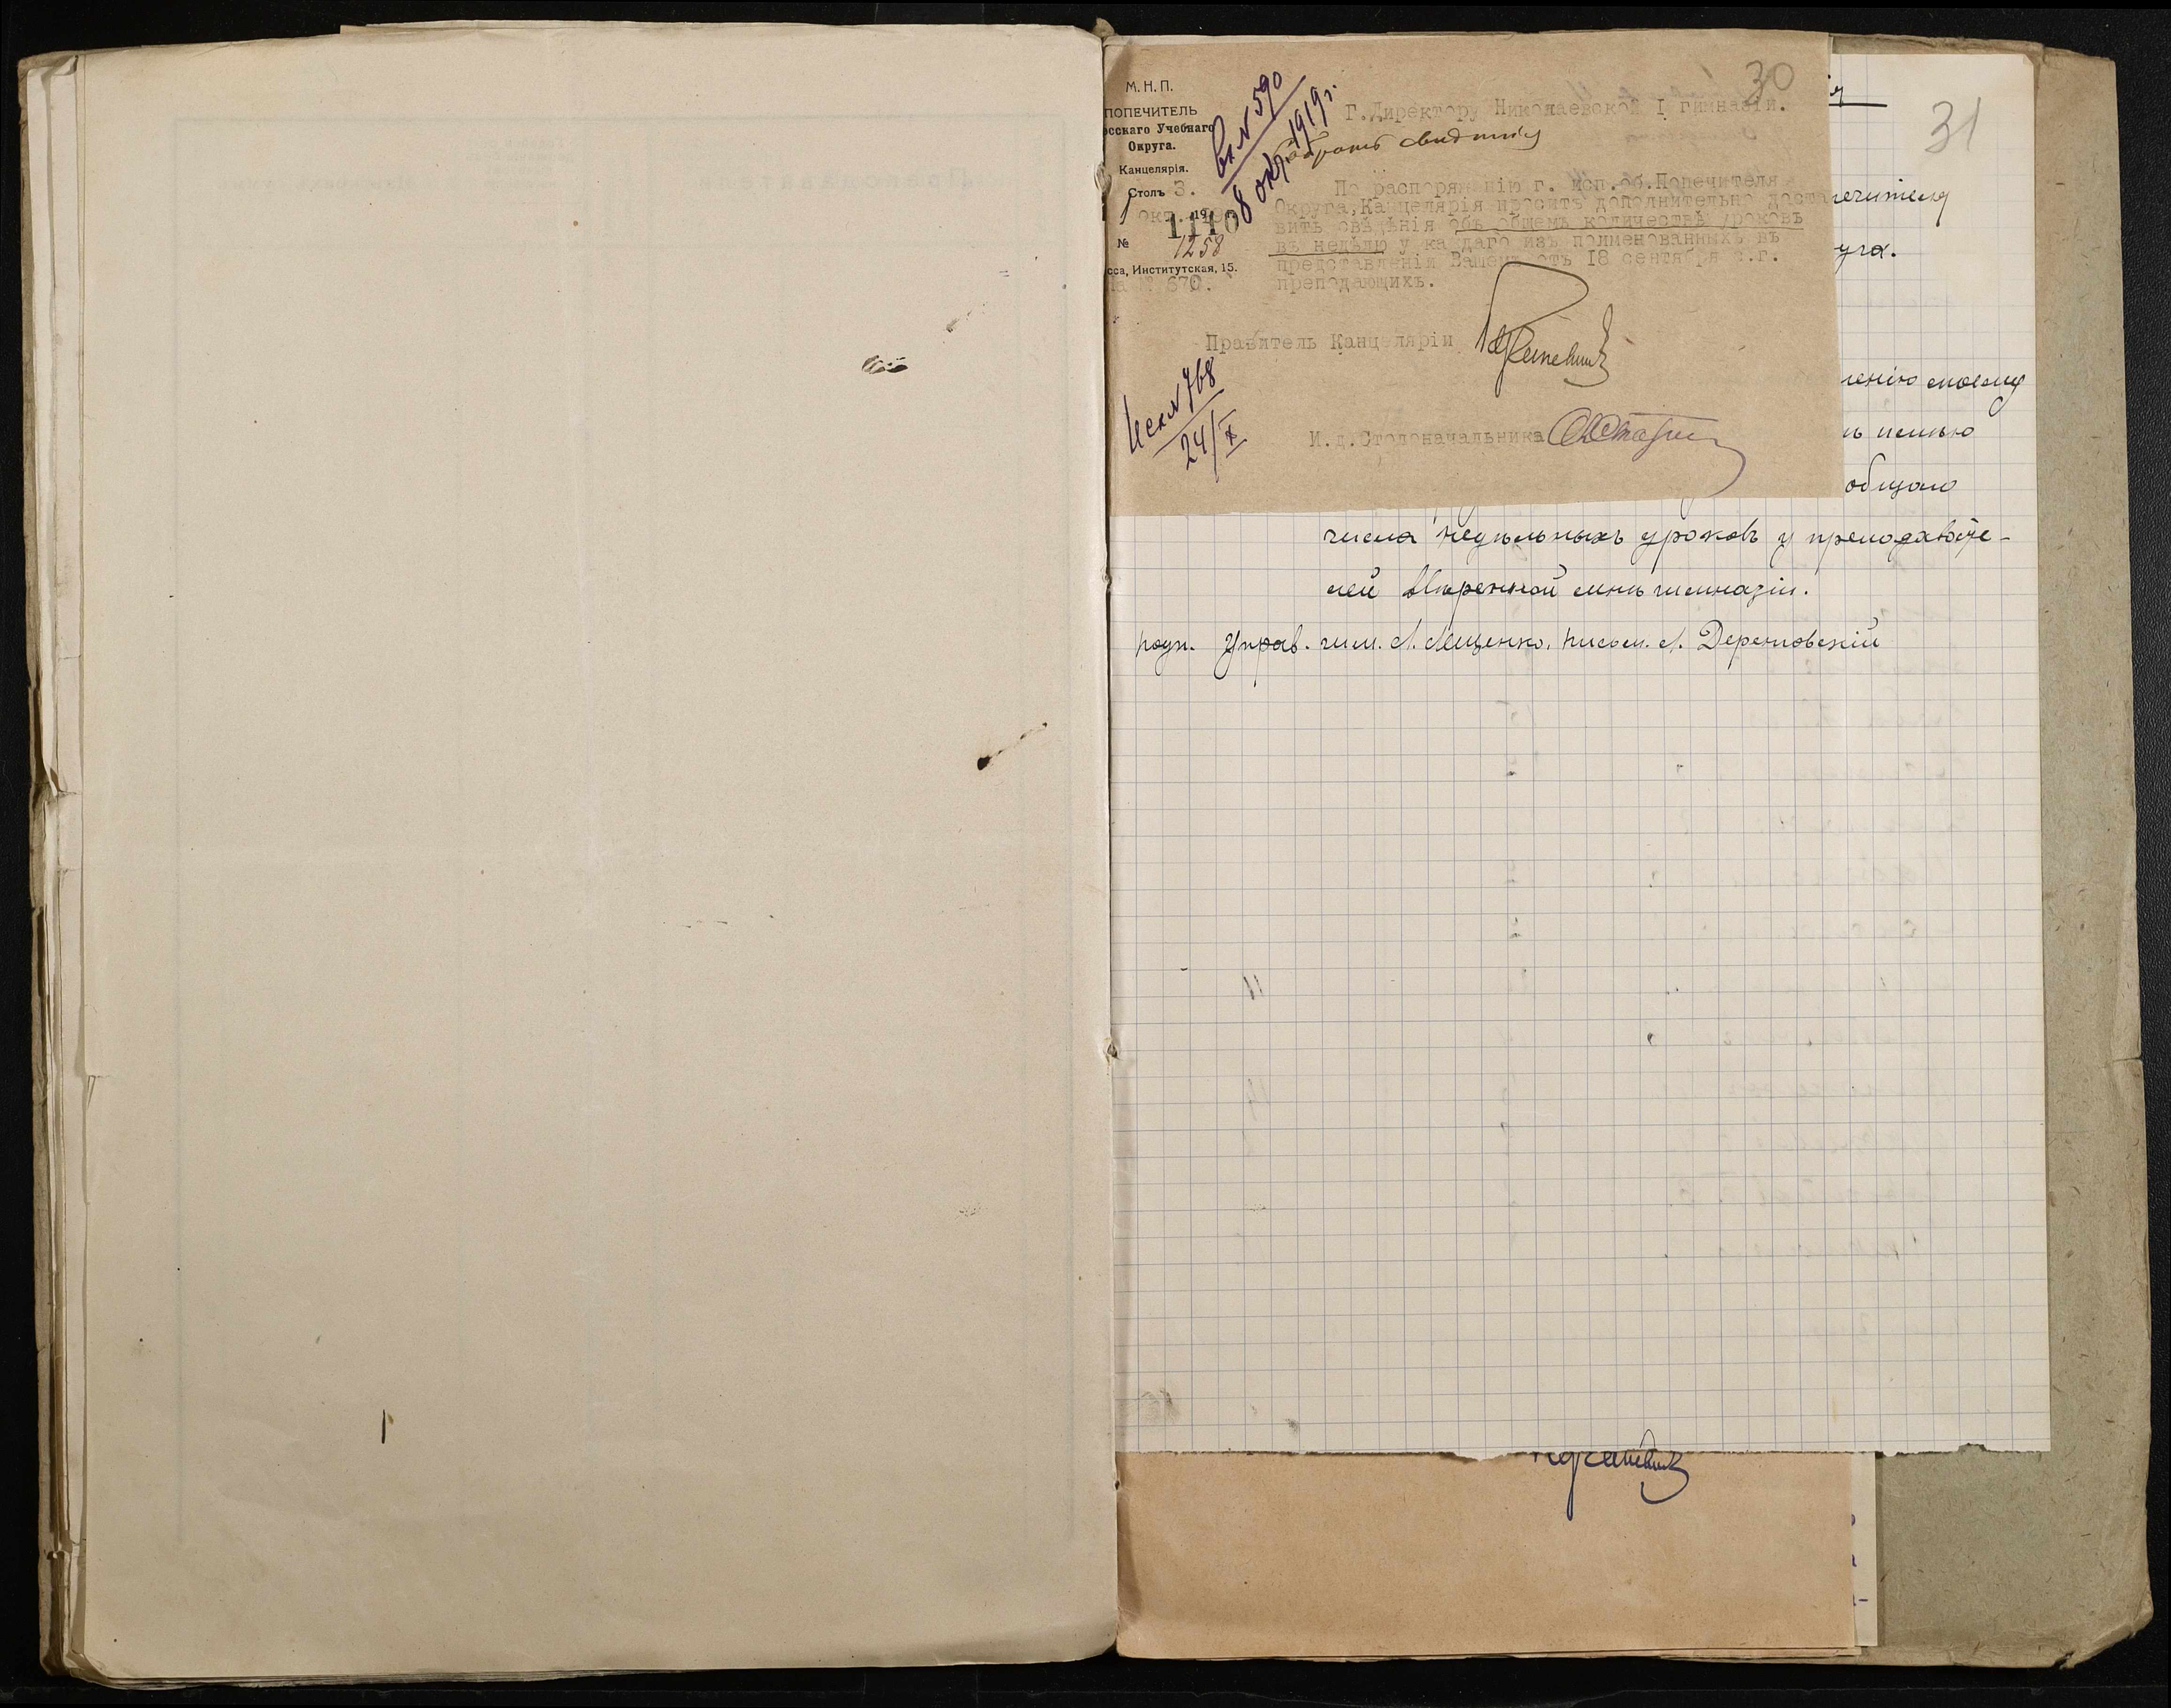 30
М. Н. П.
ПОПЕЧИТЕЛЬ
сскаго Учебнаго
Округа.
Канцелярія.
Столъ 3.
1 окт. 19
1110
№ 1258
сса, Институтская, 15.
на № 670.
Вх № 590
8 окт. 1919 г.
Г.Директору Николаевской I гимназіи.
По распоряженію г. исп.об.Попечителя
Округа,Канцелярія проситъ дополнительно доста
вить свѣдѣнія объ общемъ количествѣ уроковъ
въ недѣлю у каждаго изъ поименованныхъ въ
представленіи Вашемъ отъ 18 сентября с.г.
преподающихъ.
Правитель Канцеляріи
Исх № 768
24/X
И.д.Столоначальника
31
печителу
уга.
ленію моему
общаго
числа недѣльныхъ уроковъ у преподавате-
лей ввѣренной мнѣ гимназіи.
подп. Управ. гим. А. Лященко. Письм. А. Деренговскій